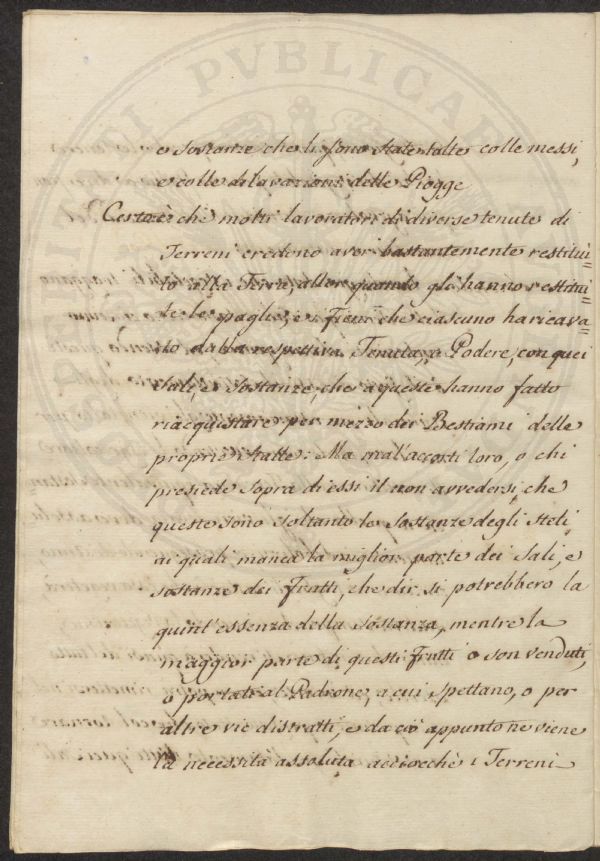 e sostanze che li sono state tolte colle messi,
e colle dilavazioni delle Piogge
Certo è che molti lavoratori di diverse tenute di
Terreni credono aver bastantemente restitui=
to alla Terra, allor quando gl'hanno restitui=
te le paglie, e i Fieni che ciascuno ha ricava=
to dalla respettiva Tenuta, o Podere, con quei
sali, e sostanze, che a queste hanno fatto
riacquistare per mezzo dei Bestiami delle
proprie stalle: Ma mal'accorti loro, o chi
presiede sopra di essi il non avvedersi, che
queste sono soltanto le sostanze degli steli,
ai quali manca la miglior parte dei sali, e
sostanze dei Frutti, che dir si potrebbero la
quint'essenza della sostanza, mentre la
maggior parte di questi Frutti o son venduti,
o portati al Padrone, a cui spettano, o per
altre vie distratti, e da ciò appunto ne viene
la necessità assoluta acciocchè i Terreni
PUBLICAE